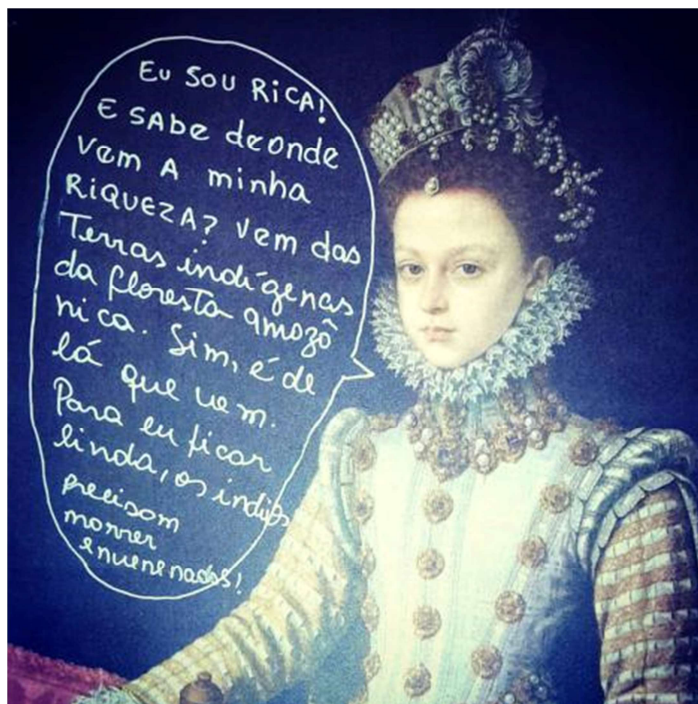 Eu sou RiCA!
E SAbe deonde
vem A minha
RIQUEZA? vem das
Terras indígenas
da floresta amazô
nica. Sim, é de
lá que vem.
Para eu ficar
linda, os indios
precisam
morrer
envenenados!